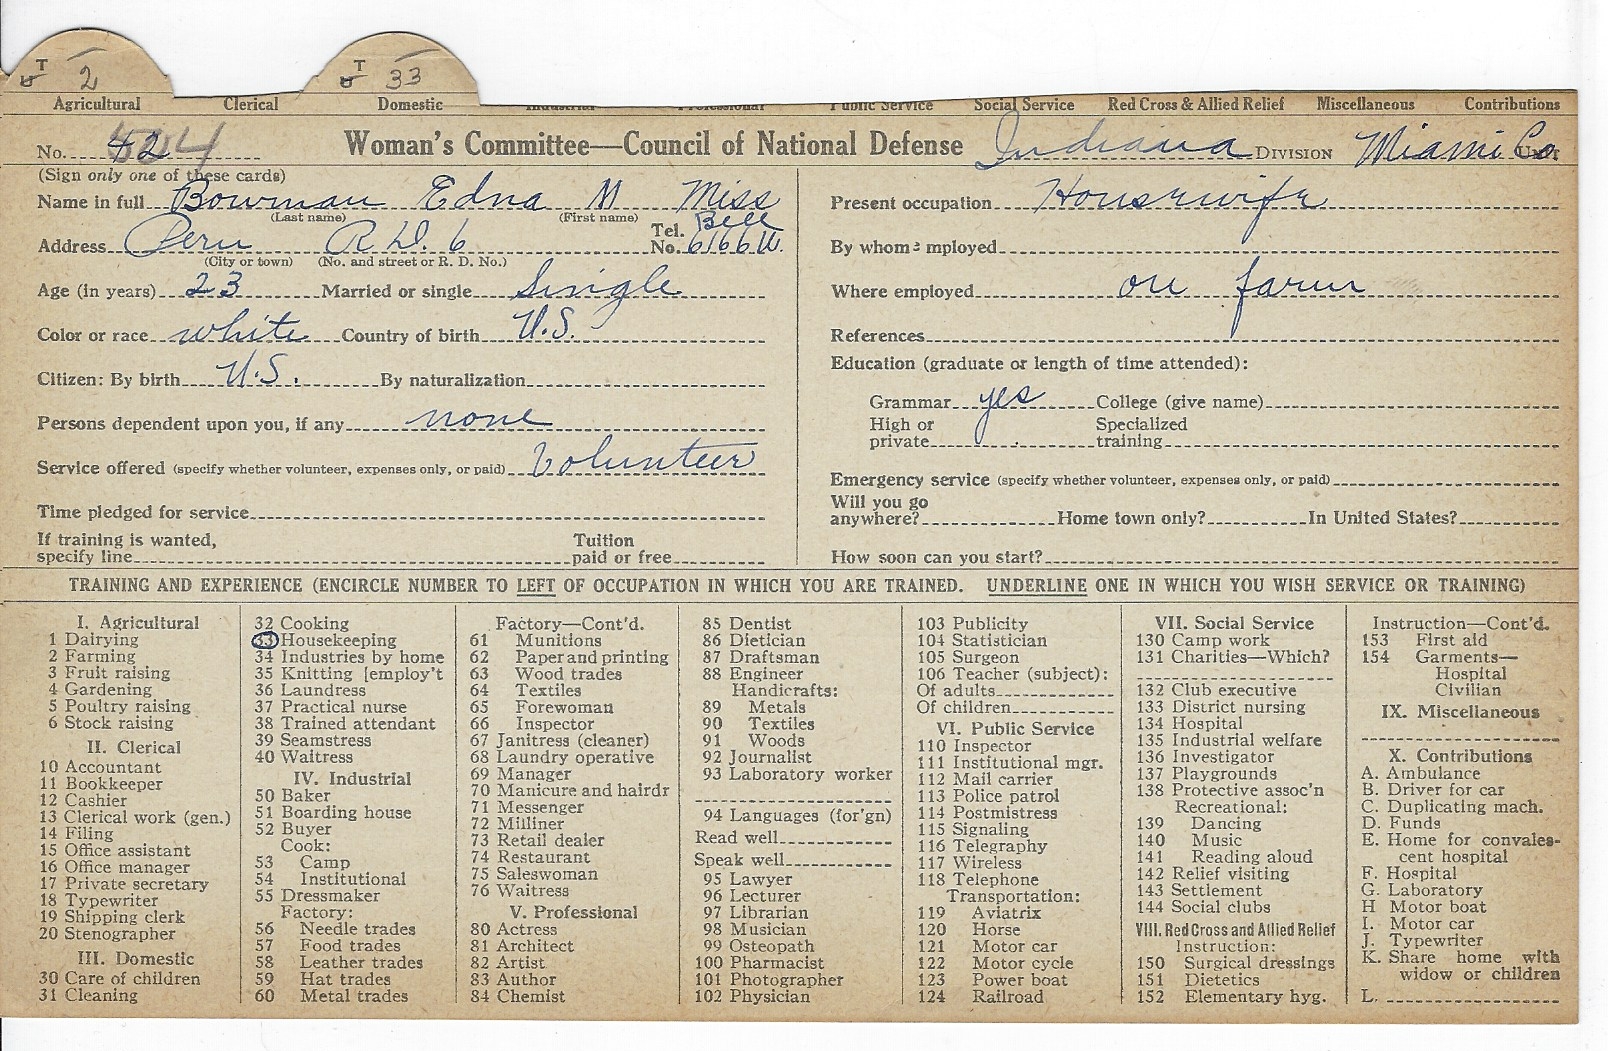 T 2 T 33
Agricultural Clerical Domestic Industrial Professional Public Service Social Service Red Cross & Allied Relief Miscellaneous Contributions
No. Woman's Committee—Council of National Defense Indiana DIVISION Miami Co. UNIT
(Sign only one of these cards)
Name in full Bowman Edna M Miss
(Last name) (First name)
Address Peru R.D. 6 Tel. No. Bell 6166W.
(City or town) (No. and street or R. D. No.)
Age (in years) 23 Married or single Single
Color or race white Country of birth U.S.
Citizen: By birth U.S. By naturalization
Persons dependent upon you, if any none
Service offered (specify whether volunteer, expenses only, or paid) Volunteer
Time pledged for service
If training is wanted,
specify line Tuition paid or free
Present occupation Housewife
By whom employed
Where employed on farm
References
Education (graduate or length of time attended):
Grammar yes College (give name)
High or private Specialized training
Emergency service (specify whether volunteer, expenses only, or paid)
Will you go
anywhere? Home town only? In United States?
How soon can you start?
TRAINING AND EXPERIENCE (ENCIRCLE NUMBER TO LEFT OF OCCUPATION IN WHICH YOU ARE TRAINED. UNDERLINE ONE IN WHICH YOU WISH SERVICE OR TRAINING)
I. Agricultural
1 Dairying
2 Farming
3 Fruit raising
4 Gardening
5 Poultry raising
6 Stock raising
II. Clerical
10 Accountant
11 Bookkeeper
12 Cashier
13 Clerical work (gen.)
14 Filing
15 Office assistant
16 Office manager
17 Private secretary
18 Typewriter
19 Shipping clerk
20 Stenographer
III. Domestic
30 Care of children
31 Cleaning
32 Cooking
33 Housekeeping
34 Industries by home
35 Knitting [employ't
36 Laundress
37 Practical nurse
38 Trained attendant
39 Seamstress
40 Waitress
IV. Industrial
50 Baker
51 Boarding house
52 Buyer
Cook:
53 Camp
54 Institutional
55 Dressmaker
Factory:
56 Needle trades
57 Food trades
58 Leather trades
59 Hat trades
60 Metal trades
Factory—Cont'd.
61 Munitions
62 Paper and printing
63 Wood trades
64 Textiles
65 Forewoman
66 Inspector
67 Janitress (cleaner)
68 Laundry operative
69 Manager
70 Manicure and hairdr
71 Messenger
72 Milliner
73 Retail dealer
74 Restaurant
75 Saleswoman
76 Waitress
V. Professional
80 Actress
81 Architect
82 Artist
83 Author
84 Chemist
85 Dentist
86 Dietician
87 Draftsman
88 Engineer
Handicrafts:
89 Metals
90 Textiles
91 Woods
92 Journalist
93 Laboratory worker
94 Languages (for'gn)
Read well
Speak well
95 Lawyer
96 Lecturer
97 Librarian
98 Musician
99 Osteopath
100 Pharmacist
101 Photographer
102 Physician
103 Publicity
104 Statistician
105 Surgeon
106 Teacher (subject):
Of adults
Of children
VI. Public Service
110 Inspector
111 Institutional mgr.
112 Mail carrier
113 Police patrol
114 Postmistress
115 Signaling
116 Telegraphy
117 Wireless
118 Telephone
Transportation:
119 Aviatrix
120 Horse
121 Motor car
122 Motor cycle
123 Power boat
124 Railroad
VII. Social Service
130 Camp work
131 Charities—Which?
132 Club executive
133 District nursing
134 Hospital
135 Industrial welfare
136 Investigator
137 Playgrounds
138 Protective assoc'n
Recreational:
139 Dancing
140 Music
141 Reading aloud
142 Relief visiting
143 Settlement
144 Social clubs
VIII. Red Cross and Allied Relief
Instruction:
150 Surgical dressings
151 Dietetics
152 Elementary hyg.
Instruction—Cont'd.
153 First aid
154 Garments—
Hospital
Civilian
IX. Miscellaneous
X. Contributions
A. Ambulance
B. Driver for car
C. Duplicating mach.
D. Funds
E. Home for convales-
cent hospital
F. Hospital
G. Laboratory
H Motor boat
I. Motor car
J. Typewriter
K. Share home with
widow or children
L.